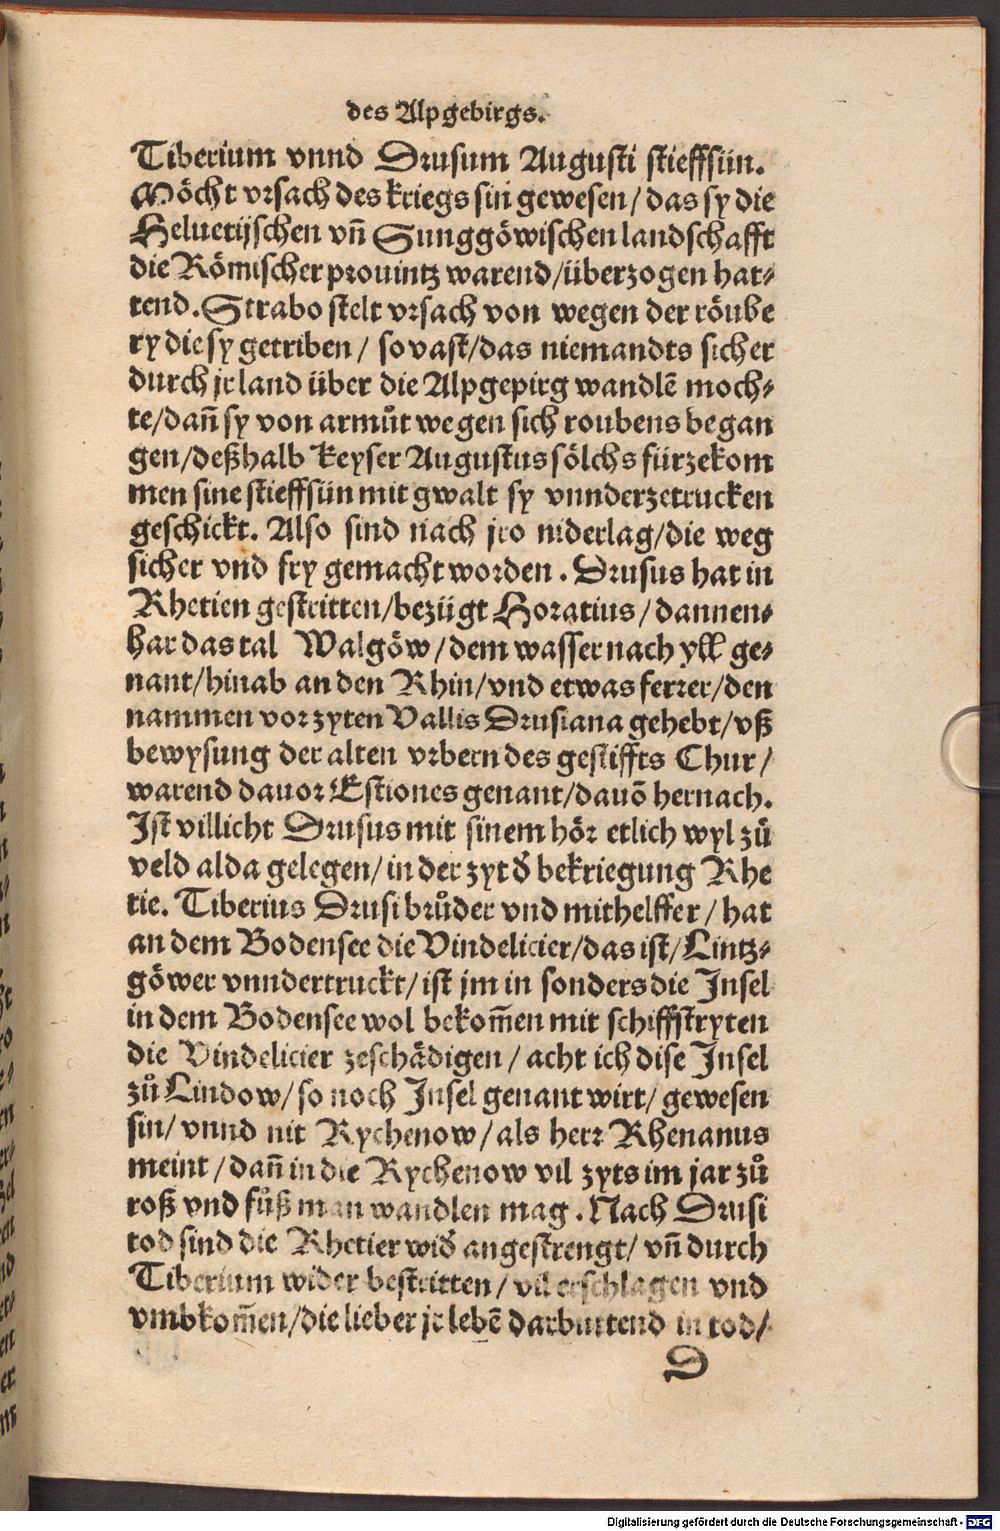 des Alpgebirgs.
Tiberium vnnd Drusum Augusti stieffsün.
Möcht vrsach des kriegs sin gewesen/ das sy die
Heluetijschen vñ Sunggöwischen landschafft
die Römischer prouintz warend/überzogen hat-
tend. Strabo stelt vrsach von wegen der röube
ry die sy getriben/ so vast/das niemandts sicher
durch jr land über die Alpgepirg wandlē moch-
te/dañ sy von armůt wegen sich roubens began
gen/deßhalb keyser Augustus sölchs fürzekom
men sine stieffsün mit gwalt sy vnnderzetrucken
geschickt. Also sind nach jro niderlag/die weg
sicher vnd fry gemacht worden. Drusus hat in
Rhetien gestritten/bezügt Horatius/dannen-
har das tal Walgöw/dem wasser nach yll ge-
nant/hinab an den Rhin/vnd etwas ferrer/den
nammen vor zyten Vallis Drusiana gehebt/vß
bewysung der alten vrbern des gestiffts Chur/
warend dauor Estiones genant/dauō hernach.
Ist villicht Drusus mit sinem hör etlich wyl zů
veld alda gelegen/in der zyt ď bekriegung Rhe
tie. Tiberius Drusi brůder vnd mithelffer/hat
an dem Bodensee die Vindelicier/das ist/Lintz-
göwer vnndertruckt/ist jm in sonders die Insel
in dem Bodensee wol bekom̄en mit schiffstryten
die Vindelicier zeschädigen/acht ich dise Insel
zů Lindow/so noch Insel genant wirt/gewesen
sin/vnnd nit Rychenow/als herr Rhenanus
meint/dañ in die Rychenow vil zyts im jar zů
roß vnd fůß man wandlen mag. Nach Drusi
tod sind die Rhetier wiď angestrengt/vñ durch
Tiberium wider bestritten/vil erschlagen vnd
vmbkom̄en/die lieber jr lebē darbuttend in tod/
D
Digitalisierung gefördert durch die Deutsche Forschungsgemeinschaft - DFG